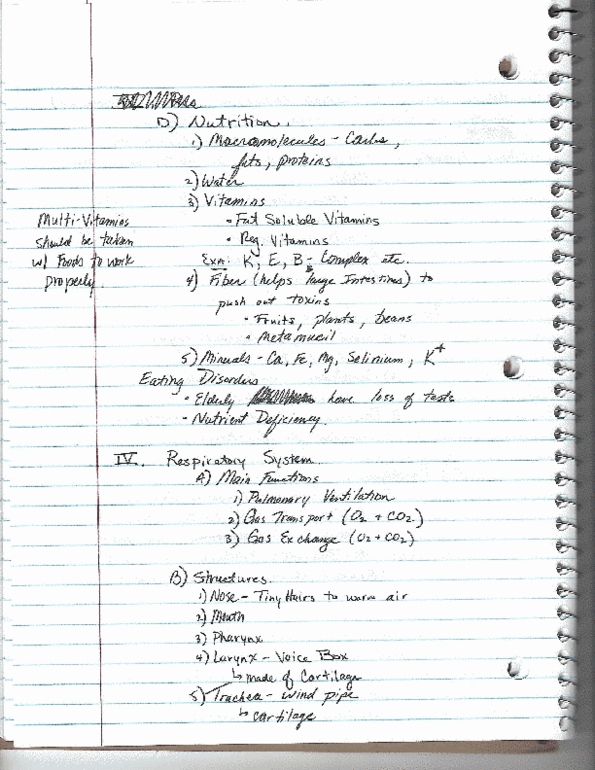 D) Nutrition.
1) Macromolecules - Carbs,
fats, proteins
2) Water
3) Vitamins
• Fat Soluble Vitamins
• Reg. Vitamins
Exm: K, E, B - Complex etc.
Multi-Vitamins
should be taken
w/ Foods to work
properly.
4) Fiber (helps large Intestines) to
push out toxins
• Fruits, plants, beans
• Metamucil
5) Minerals - Ca, Fe, Mg, Selinium, K+
Eating Disorders
• Elderly have loss of taste
• Nutrient Deficiency.
IV. Respiratory System
A) Main Functions
1) Pulmonary Ventilation
2) Gas Transport (O2 + CO2)
3) Gas Exchange (O2 + CO2)
B) Structures.
1) Nose - Tiny Hairs to warm air
2) Mouth
3) Pharynx
4) Larynx - Voice Box
↳ made of Cartilage
5) Trachea - wind pipe
↳ cartilage